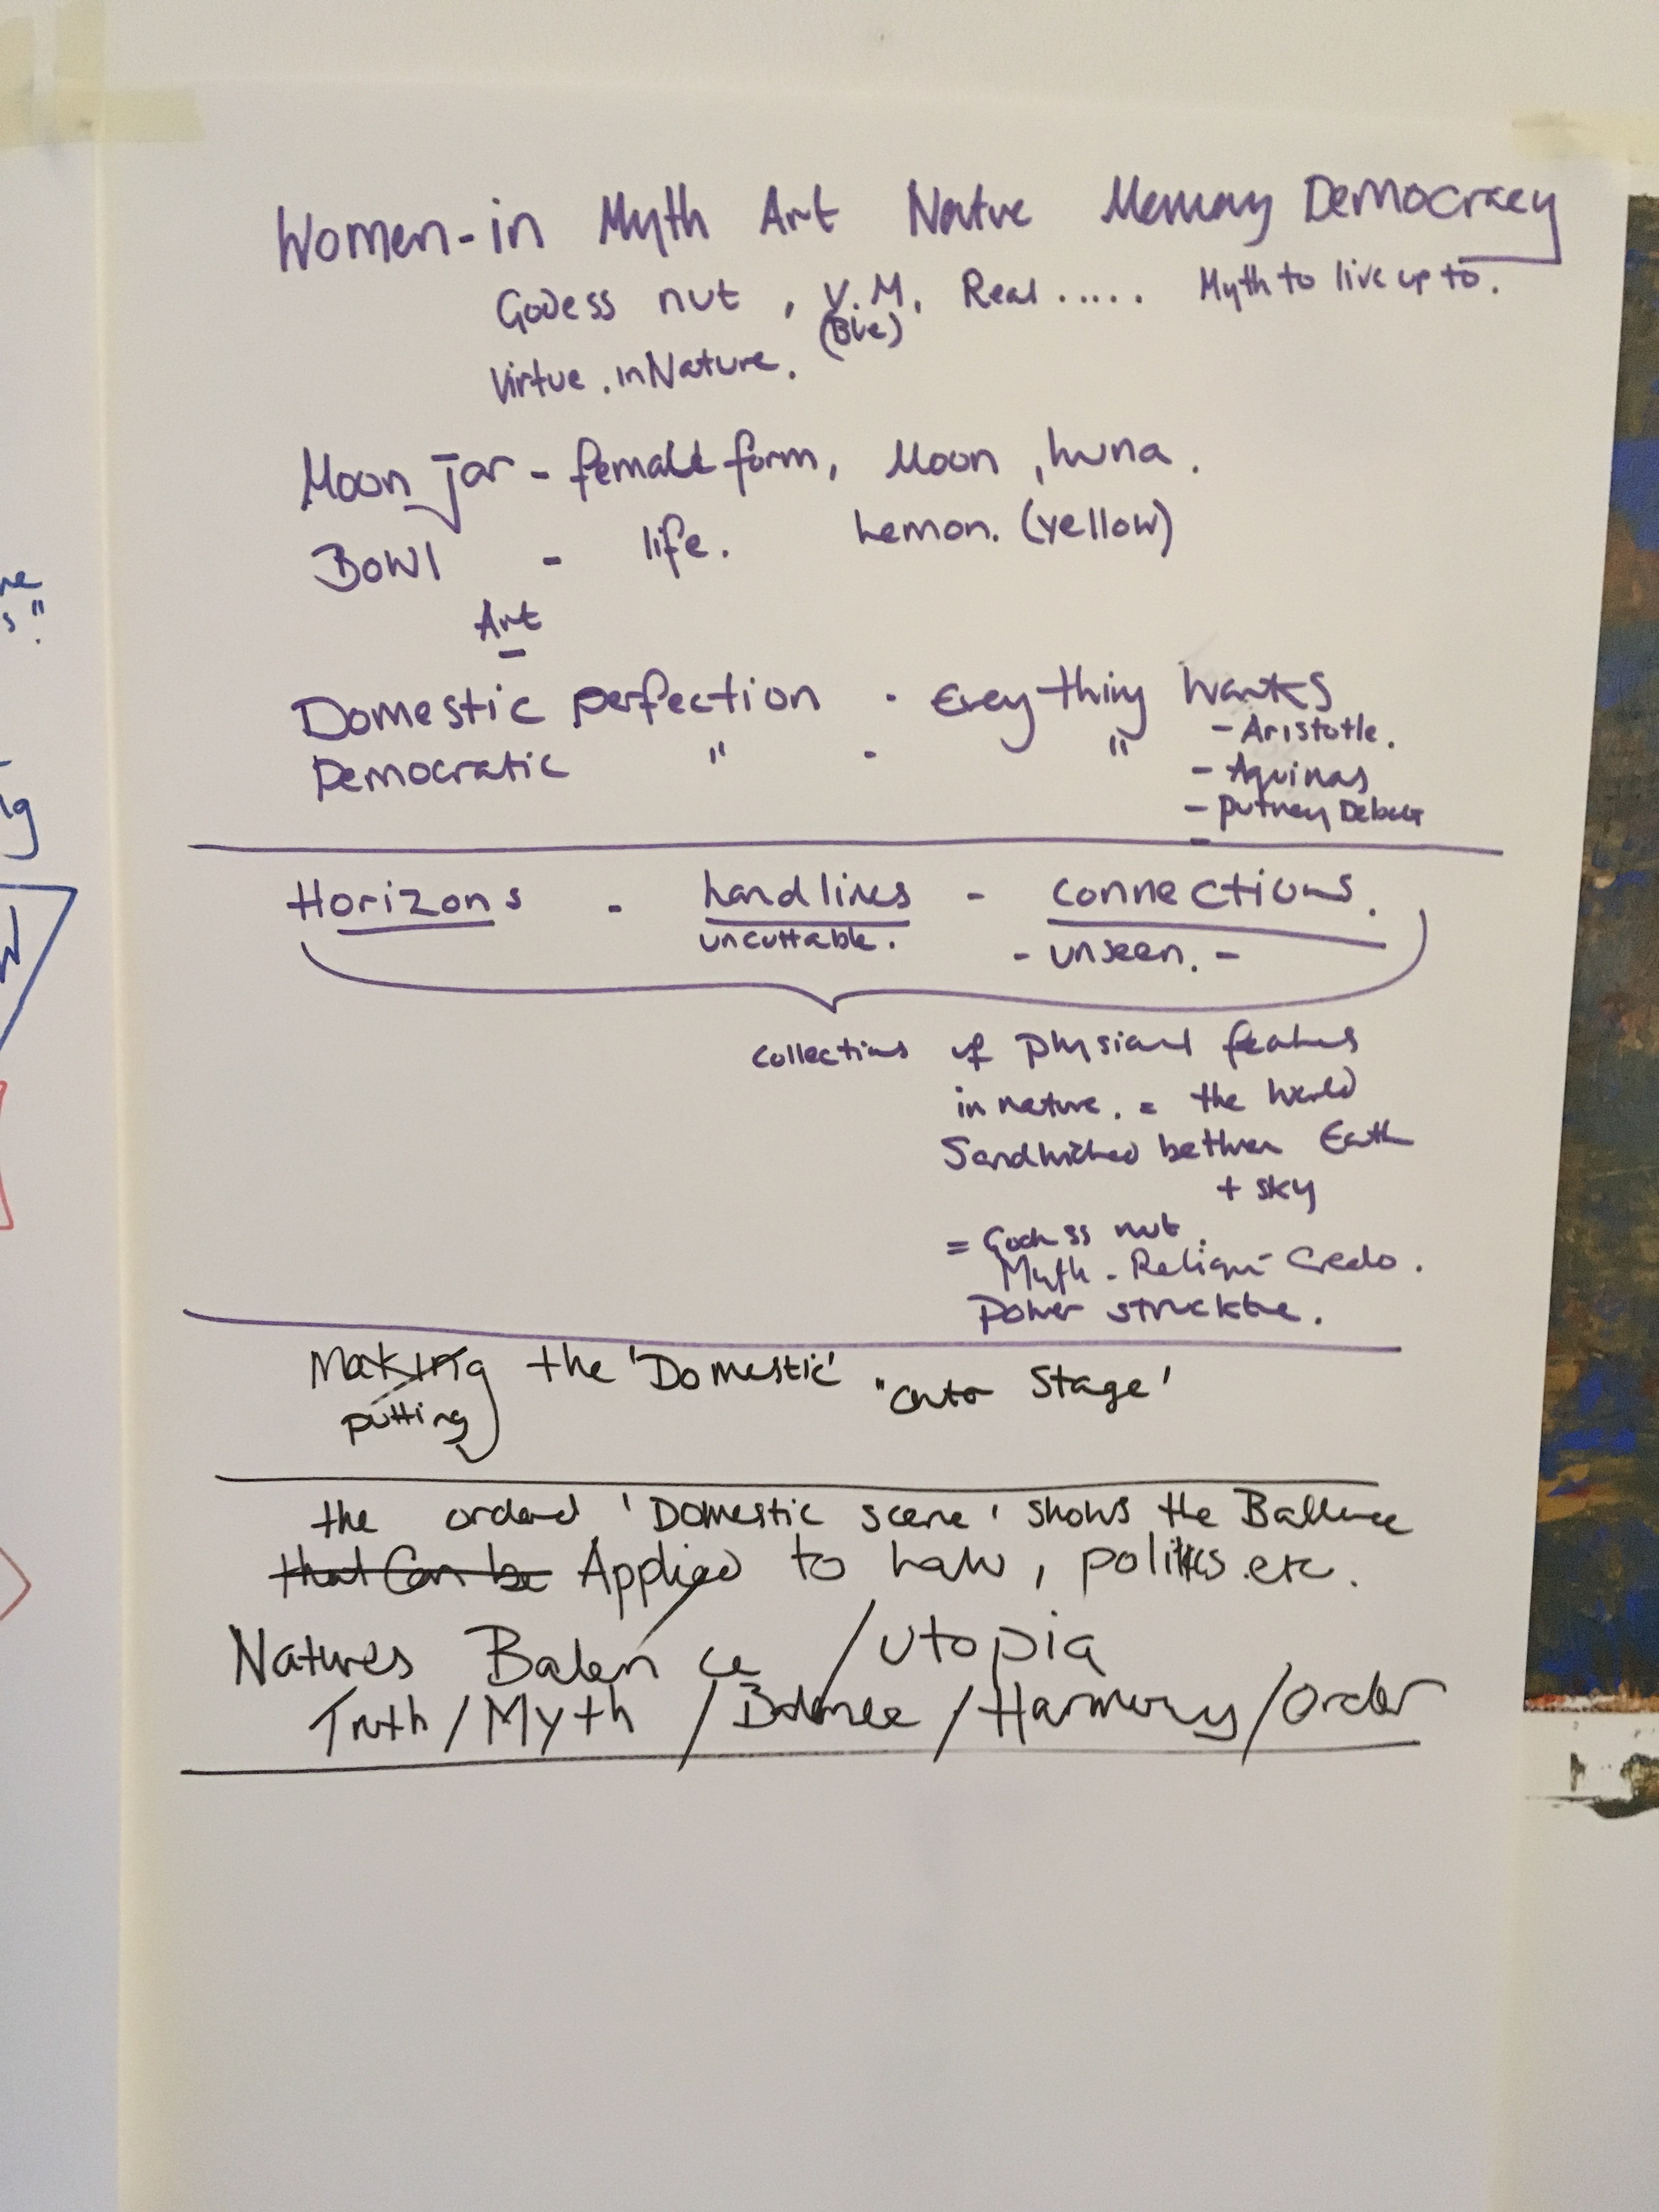 Women-in Myth Art Natve Memory Democracy
Godess nut , V.M. Real ..... Myth to live up to.
(Blue)
Virtue . in Nature.
Moon Jar - female form, Moon , Luna .
Bowl - life. Lemon. (yellow)
Art
Domestic perfection . Everything works
- Aristotle.
Democratic " . "
- Aquinas
- Putney Debate
Horizons - hand lines - connections.
uncuttable. - unseen. -
collections of physical features
in nature. = the world
Sandwiched between Earth
+ sky
= Godess nut .
Myth - Religion - Credo .
Power structure .
Making the 'Domestic' "onto Stage'
putting
the ordered 'Domestic scene' shows the Ballence
that Can be Applied to Law, politics .etc.
Natures Balence / utopia
Truth / Myth / Balence / Harmony / Order